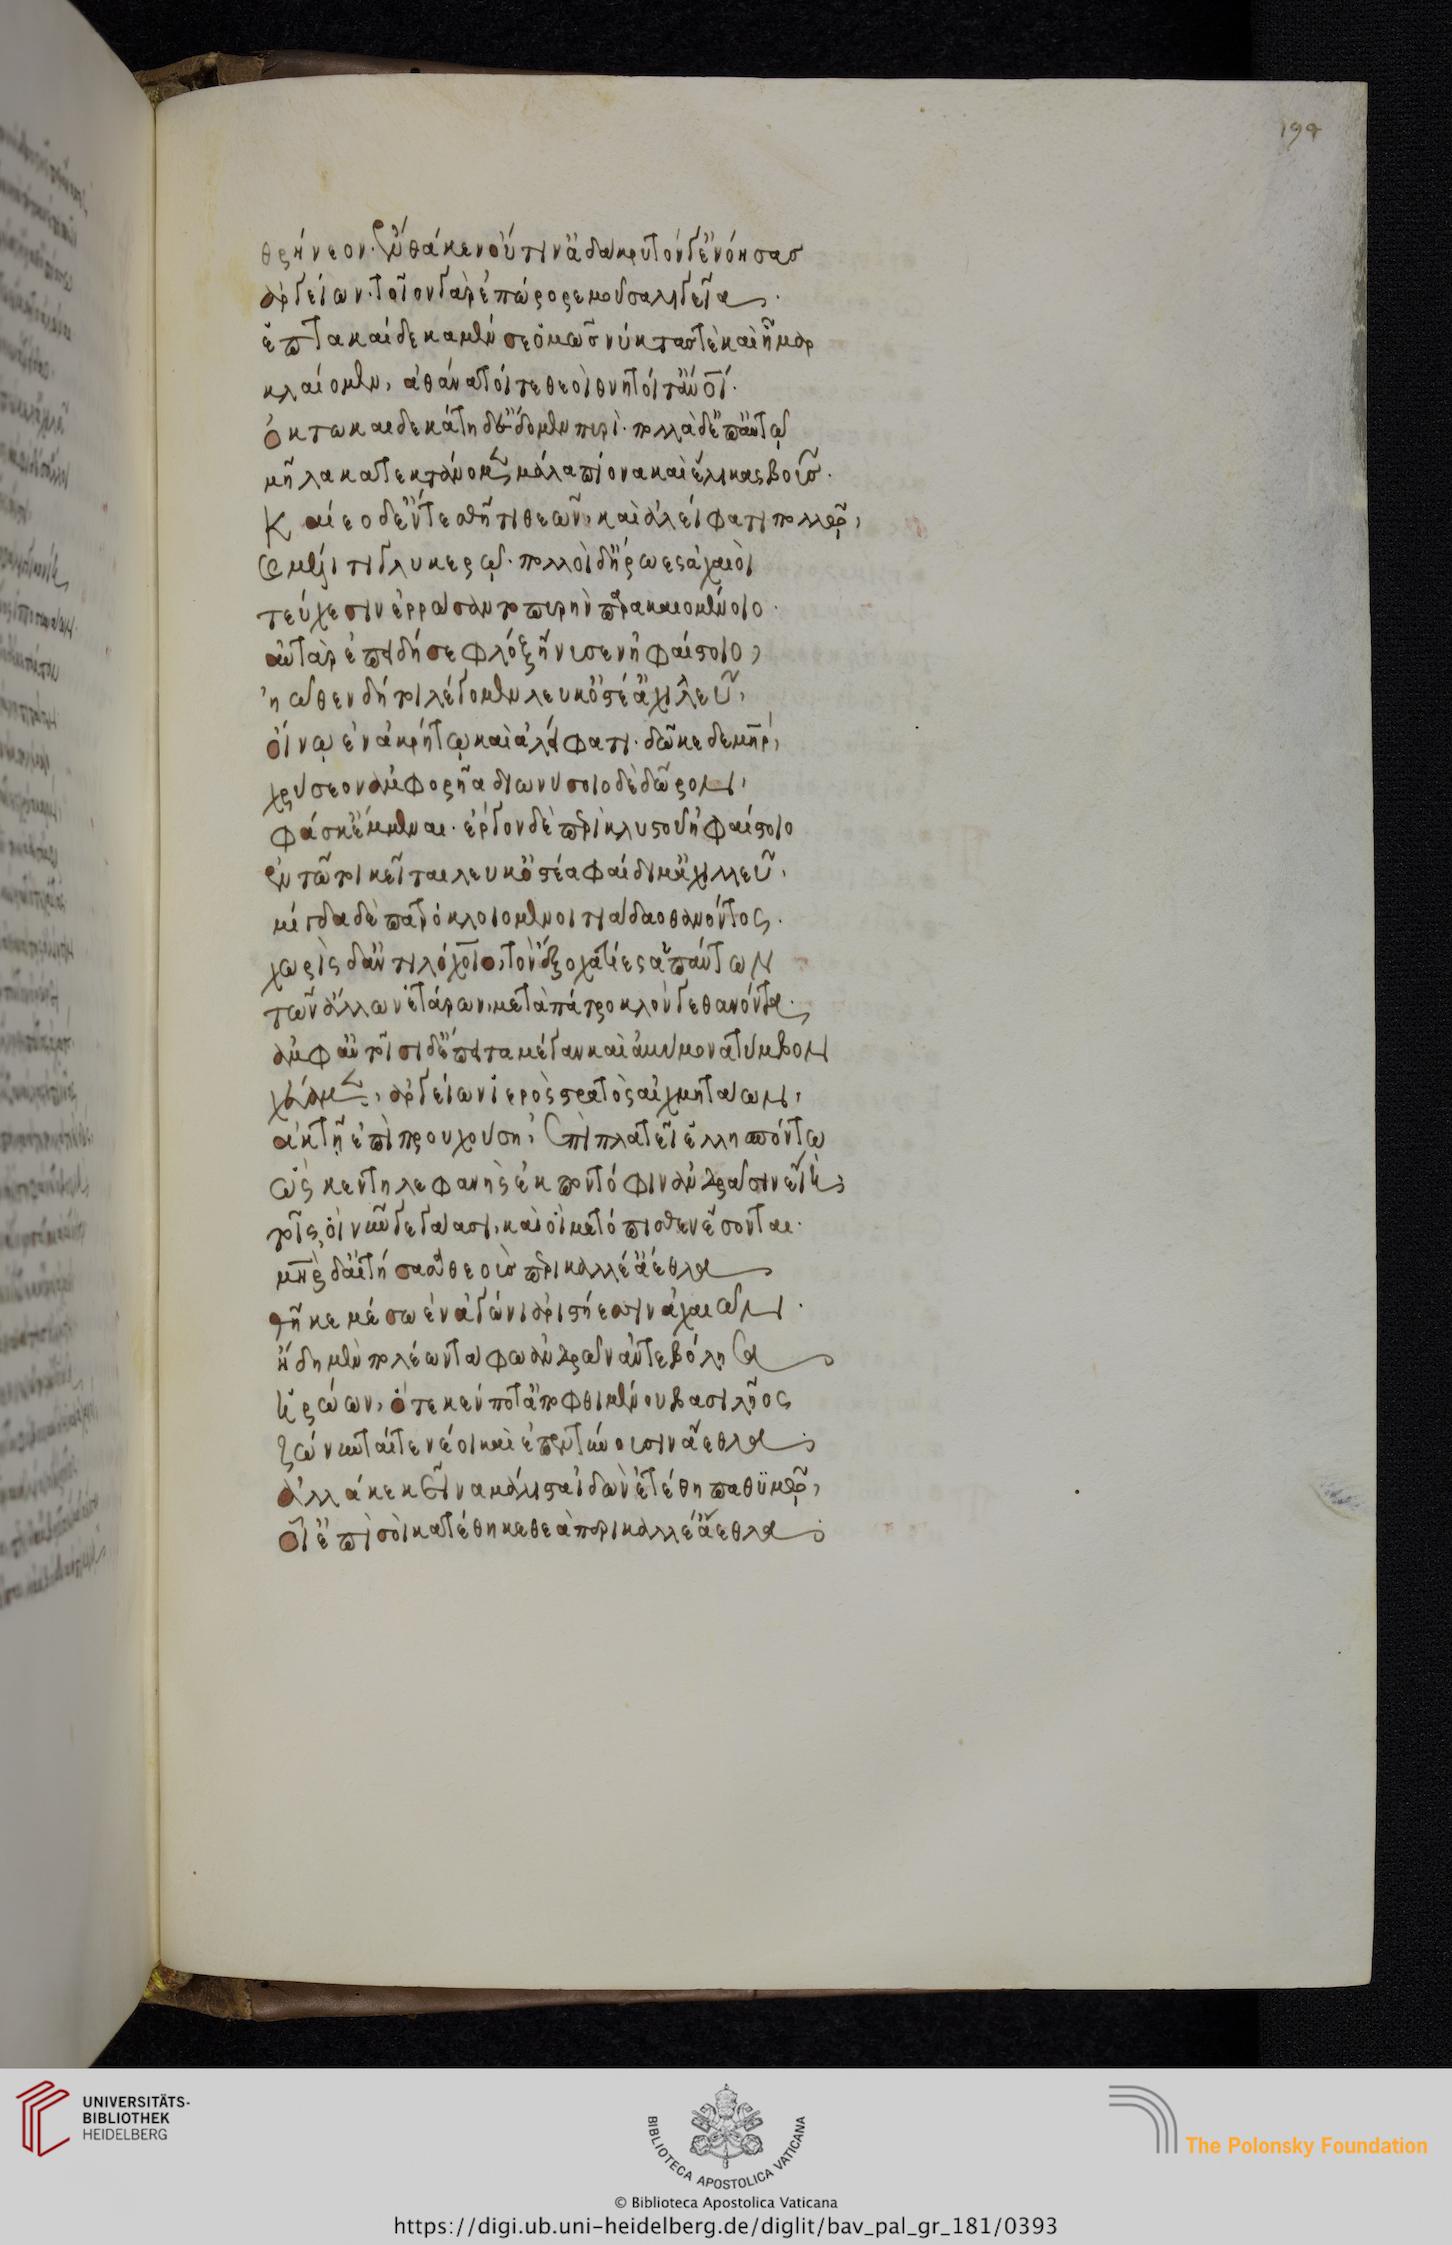 197
θρήνεον· ἔνθά κεν οὔ τιν' ἀδάκρυτόν γ' ἐνόησας
ἀργείων· τοῖον γὰρ ἐπώρορε μοῦσα λίγεια·
ἑπτακαίδεκα μέν σε ὁμῶς νύκτας τε καὶ ἦμαρ
κλαίομεν, ἀθάνατοί τε θεοὶ θνητοί τ' ἄνθρωποί·
ὀκτωκαιδεκάτη δ' ἔδομεν πυρί· πολλὰ δ' ἐπ' αὐτῷ
μῆλα κατεκτάνομεν μάλα πίονα καὶ ἕλικας βοῦς·
Καίεο δ' ἔν τ' ἐσθῆτι θεῶν, καὶ ἀλείφατι πολλῷ,
καὶ μέλιτι γλυκερῷ· πολλοὶ δ' ἥρωες ἀχαιοὶ
τεύχεσιν ἐρρώσαντο πυρὴν πέρι καιομένοιο·
αὐτὰρ ἐπειδή σε φλὸξ ἤνυσεν ἡφαίστοιο,
ἠῶθεν δή τοι λέγομεν λεύκ' ὀστέ' ἀχιλλεῦ,
οἴνῳ ἐν ἀκρήτῳ καὶ ἀλείφατι· δῶκε δὲ μήτηρ,
χρύσεον ἀμφορῆα διωνύσοιο δὲ δῶρον,
φάσκ' ἔμμεναι· ἔργον δὲ περικλυτοῦ ἡφαίστοιο
ἐν τῷ τοι κεῖται λεύκ' ὀστέα φαίδιμ' ἀχιλλεῦ,
μίγδα δὲ πατρόκλοιο μενοιτιάδαο θανόντος·
χωρὶς δ' ἀντιλόχοιο, τὸν ἔξοχα τίες ἁπάντων
τῶν ἄλλων ἑτάρων, μετὰ πάτροκλόν γε θανόντα·
ἀμφ' αὐτοῖσι δ' ἔπειτα μέγαν καὶ ἀμύμονα τύμβον
χεύαμεν, ἀργείων ἱερὸς στρατὸς αἰχμητάων,
ἀκτῇ ἐπὶ προυχούσῃ, ἐπὶ πλατεῖ ἑλλησπόντῳ
ὥς κεν τηλεφανὴς ἐκ ποντόφιν ἀνδράσιν εἴη,
τοῖς, οἳ νῦν γεγάασι, καὶ οἳ μετόπισθεν ἔσονται·
μήτηρ δ' αἰτήσασα θεοὺς περικαλλέ' ἄεθλα
θῆκε μέσῳ ἐν ἀγῶνι ἀριστήεσσιν ἀχαιῶν·
ἤδη μὲν πολέων τάφῳ ἀνδρῶν ἀντεβόλησα
ἡρώων, ὅτε κέν ποτ' ἀποφθιμένου βασιλῆος
ζώννυνταί τε νέοι καὶ ἐπεντύνουσιν ἄεθλα·
ἀλλά κε κεῖνα μάλιστα ἰδὼν ἐτεθήπεα θυμῷ,
οἷ' ἐπὶ σοὶ κατέθηκε θεὰ περικαλλέ' ἄεθλα·
UNIVERSITÄTS-
BIBLIOTHEK
HEIDELBERG
BIBLIOTECA APOSTOLICA VATICANA
The Polonsky Foundation
© Biblioteca Apostolica Vaticana
https://digi.ub.uni-heidelberg.de/diglit/bav_pal_gr_181/0393